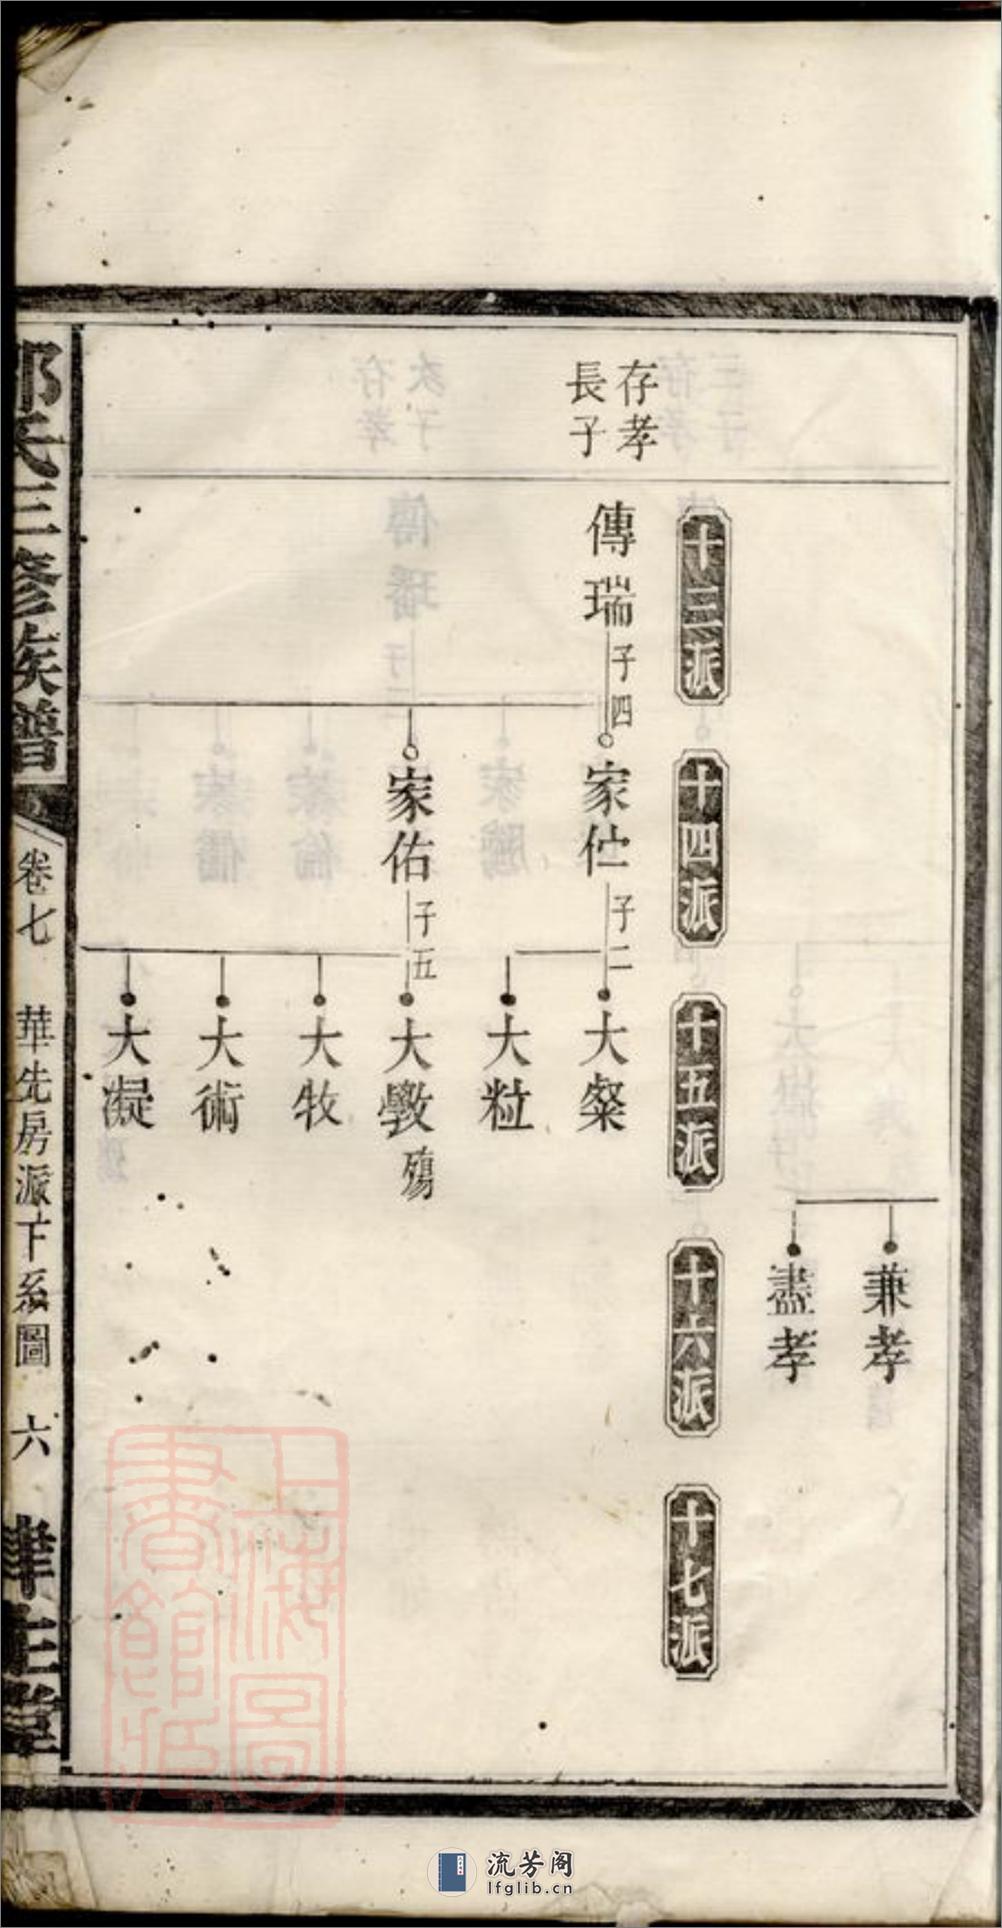 兼孝
盡孝
十三派
十四派
十五派
十六派
十七派
存孝
長子
傳瑞
子四
家伫
子二
大粲
大粒
家佑
子五
大斆
殤
大牧
大術
大凝
氏三修族譜
卷七
華先房派下系圖
六
堂
上海圖
書館藏
流芳阁
lfglib.cn